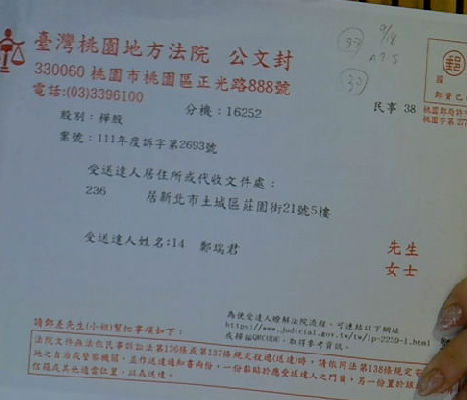 臺灣桃園地方法院 公文封
330060 桃園市桃園區正光路888號
電話:(03)3396100
分機:16252
股別:樺股
民事 38
案號:111年度訴字第2693號
受送達人居住所或代收文件處:
236 居新北市土城區莊園街21號5樓
受送達人姓名:14 鄭瑞君
先生
女士
為使受送達人瞭解法院流程,可連結以下網址
https://www.judicial.gov.tw/tw/lp-2259-1.html
或掃描QRCODE,取得參考資訊。
請郵差先生(小姐)幫忙事項如下:
法院文件無法依民事訴訟法第136條或第137條規定投遞(送達)時,請依同法第138條規定寄
地之自治或警察機關,並作送達通知書兩份,一份黏貼於應受送達人之門首,另一份置於該
信箱或其他適當位置,以為送達。